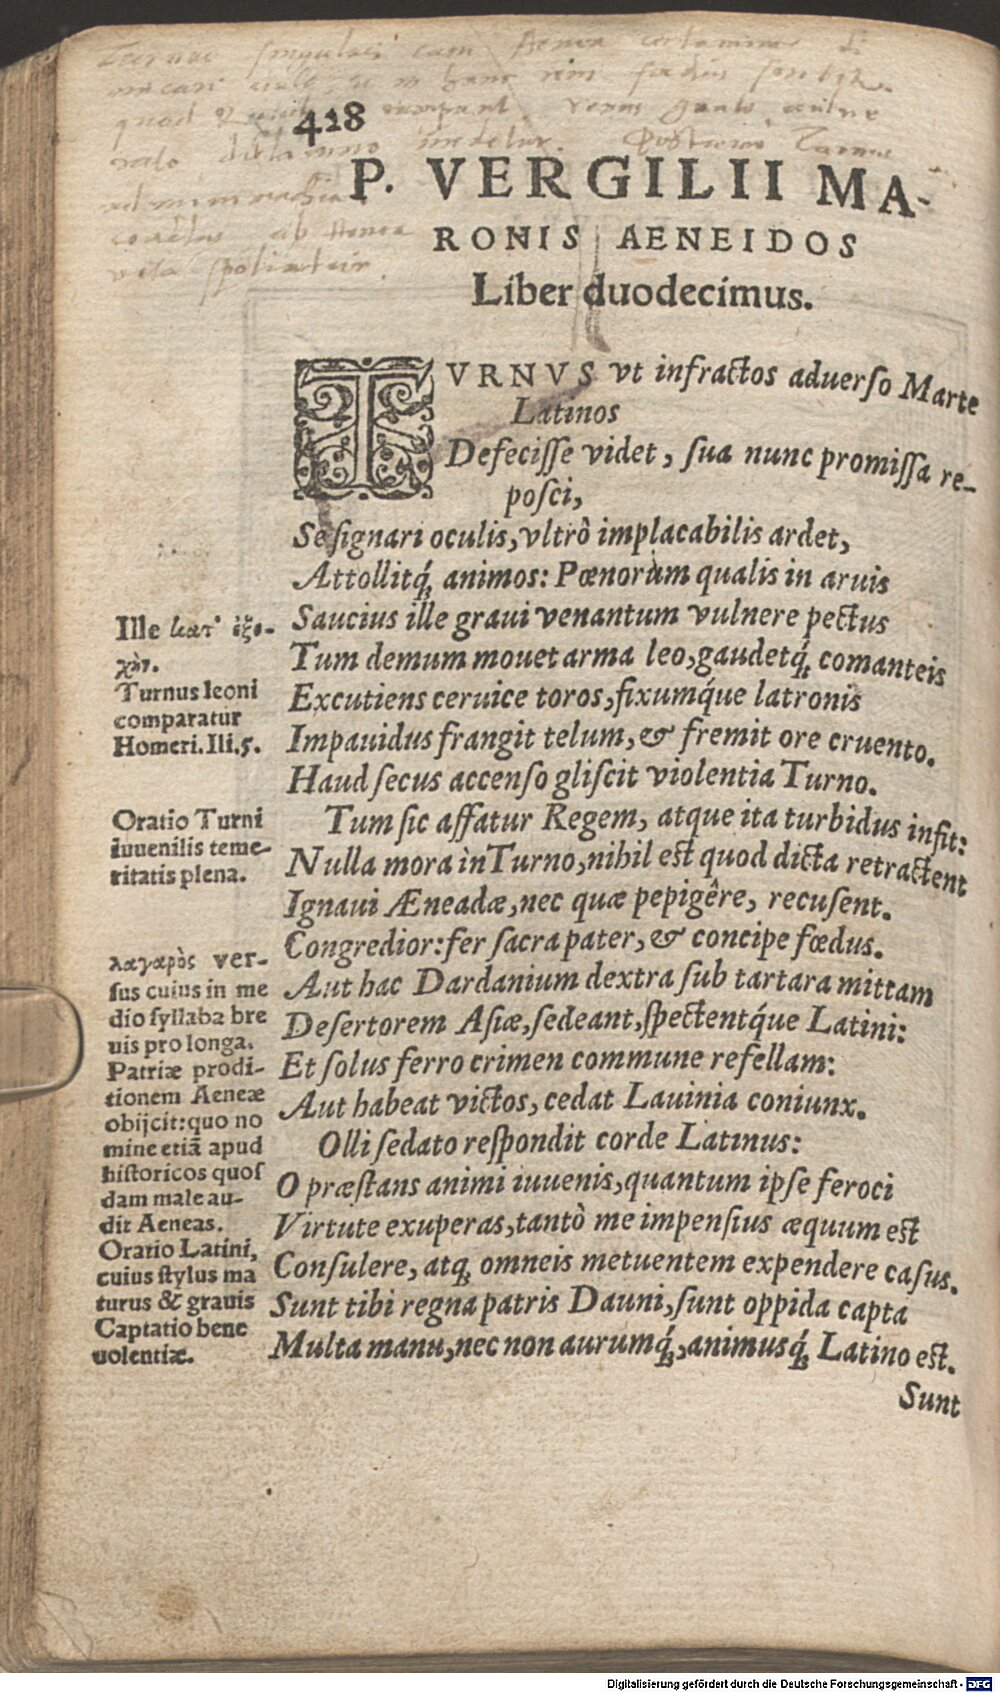 Turnus singulari cum Aenea certamine di
micari
quod rumpunt
ralo dictamno Postremo Turnus
coactus ab Aenea
vita spoliatur.
428
P. VERGILII MA-
RONIS AENEIDOS
Liber duodecimus.
TVRNVS vt infractos aduerso Marte
Latinos
Defecisse videt, sua nunc promissa re-
posci,
Se signari oculis, vltrò implacabilis ardet,
Attollitq́; animos: Pœnorum qualis in aruis
Saucius ille graui venantum vulnere pectus
Tum demum mouet arma leo, gaudetq́; comanteis
Excutiens ceruice toros, fixumq́ue latronis
Impauidus frangit telum, & fremit ore cruento.
Haud secus accenso gliscit violentia Turno.
Tum sic affatur Regem, atque ita turbidus infit:
Nulla mora in Turno, nihil est quod dicta retractent
Ignaui Æneadæ, nec quæ pepigêre, recusent.
Congredior: fer sacra pater, & concipe fœdus.
Aut hac Dardanium dextra sub tartara mittam
Desertorem Asiæ, sedeant, spectentq́ue Latini:
Et solus ferro crimen commune refellam:
Aut habeat victos, cedat Lauinia coniunx.
Olli sedato respondit corde Latinus:
O præstans animi iuuenis, quantum ipse feroci
Virtute exuperas, tantò me impensius æquum est
Consulere, atq; omneis metuentem expendere casus.
Sunt tibi regna patris Dauni, sunt oppida capta
Multa manu, nec non aurumq́;, animusq́; Latino est.
Sunt
Ille κατ' ἐξο-
χὴν.
Turnus leoni
comparatur
Homeri. Ili. 5.
Oratio Turni
iuuenilis teme-
ritatis plena.
λαγαρὸς ver-
sus cuius in me
dio syllaba bre
uis pro longa.
Patriæ prodi-
tionem Aeneæ
obijcit: quo no
mine etiā apud
historicos quos
dam male au-
dit Aeneas.
Oratio Latini,
cuius stylus ma
turus & grauis
Captatio bene
uolentiæ.
Digitalisierung gefördert durch die Deutsche Forschungsgemeinschaft - DFG